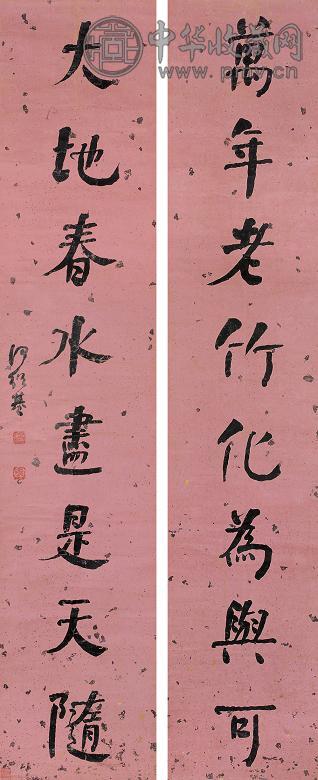 萬年老竹化為與可
大地春水盡是天隨
何紹基
中华收藏网